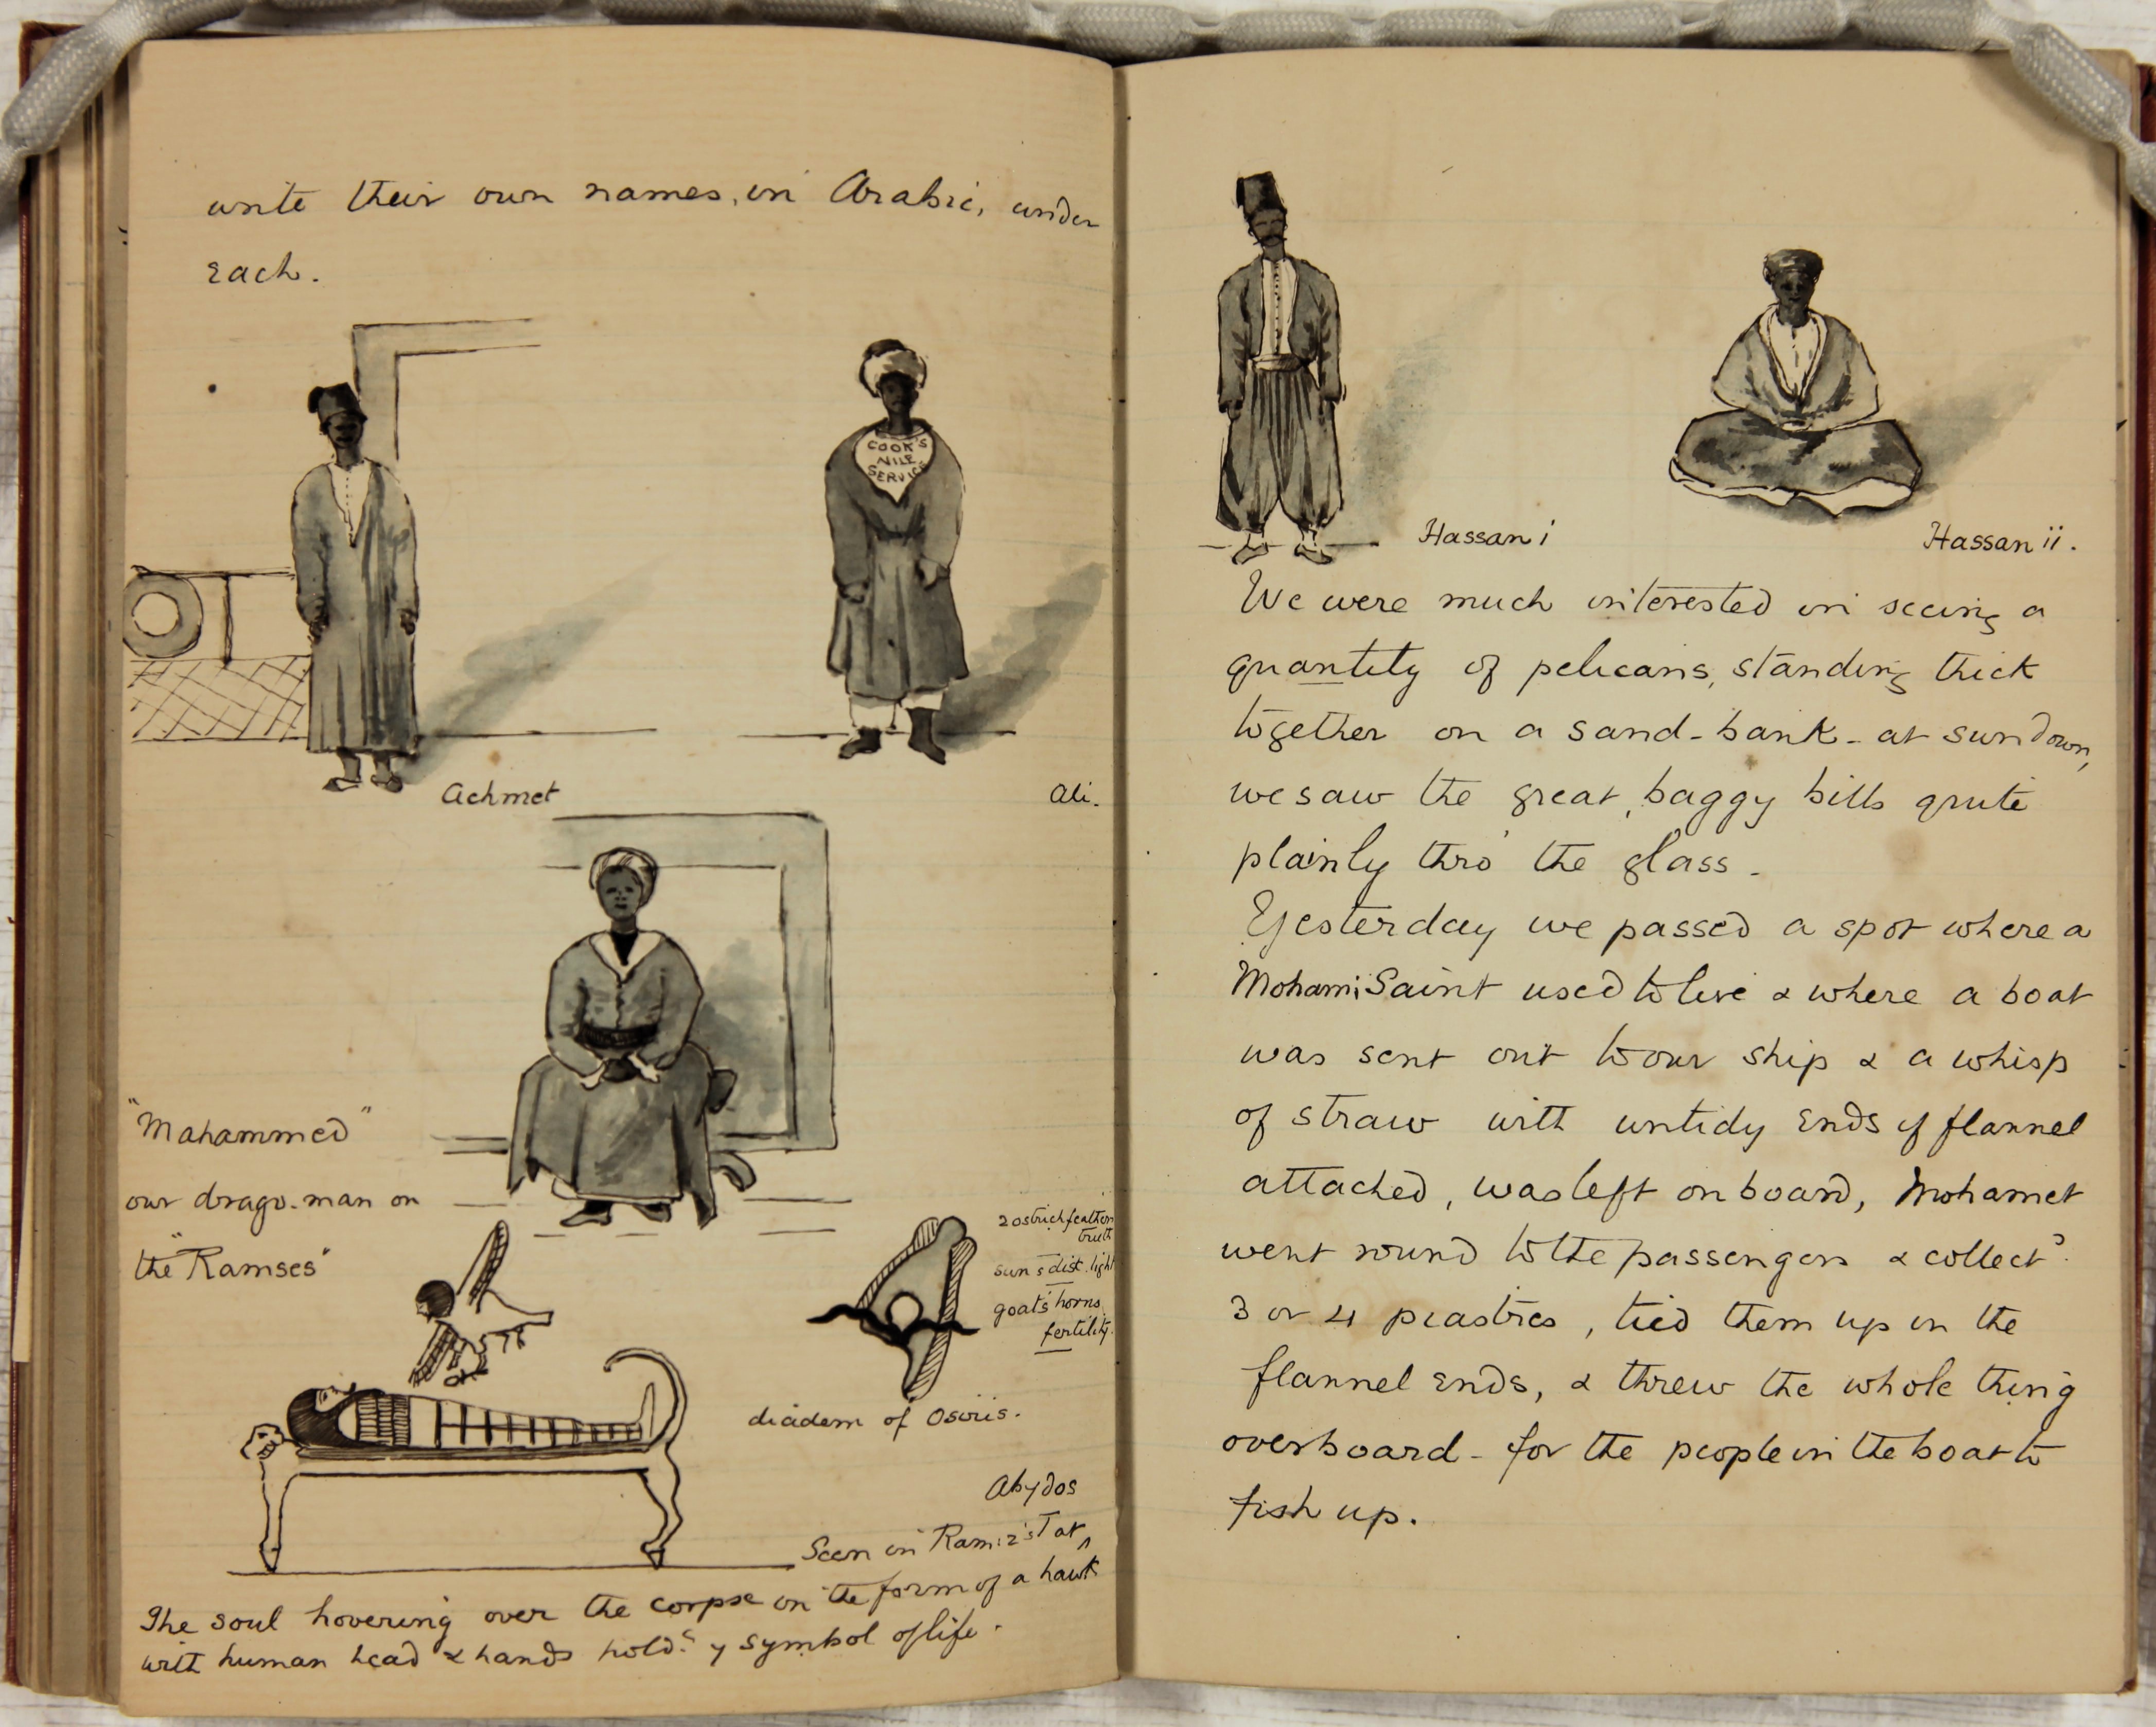 write their own names, in Arabic, under
each.
COOK'S
NILE
SERVICE
Achmet
Ali.
"Mahammed"
our drago-man on
the "Ramses"
2 ostrich feathers
truth
sun's disk. light
goat's horns
fertility.
diadem of Osiris.
Abydos
Seen in Ram: 2's T at
The soul hovering over the corpse in the form of a hawk
with human head & hands hold.g y symbol of life.
Hassan i
Hassan ii.
We were much interested in seeing a
quantity of pelicans, standing thick
together on a sand-bank - at sundown,
we saw the great, baggy bills quite
plainly thro' the glass.
Yesterday we passed a spot where a
Moham: Saint used to live & where a boat
was sent out to our ship & a whisp
of straw with untidy ends of flannel
attached, was left on board, Mohamet
went round to the passengers & collect.d
3 or 4 piastres, tied them up in the
flannel ends, & threw the whole thing
overboard - for the people in the boat to
fish up.